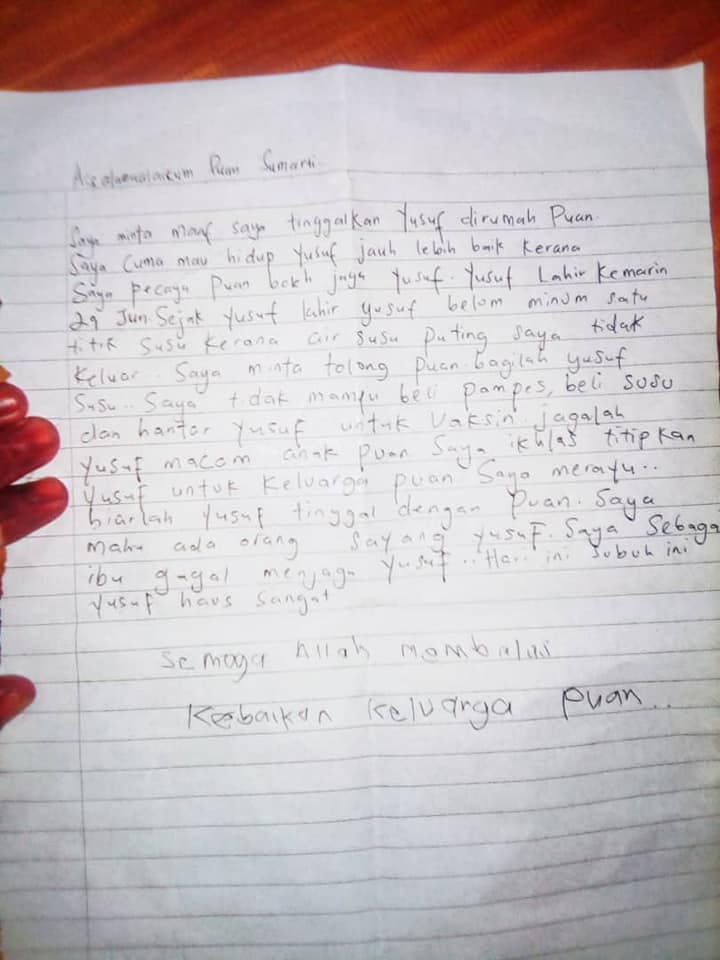 Assalamualaikum Puan Sumarti
Saya minta maaf saya tinggalkan Yusuf dirumah Puan.
Saya cuma mau hidup Yusuf jauh lebih baik kerana
Saya pecaya Puan boleh jaga Yusuf. Yusuf Lahir Kemarin
29 Jun. Sejak Yusuf lahir yusuf belom minum satu
titik susu kerana air susu puting saya tidak
Keluar. Saya minta tolong puan bagilah yusuf
Susu.. Saya tidak mampu beli pampes, beli susu
dan hantar Yusuf untuk vaksin. jagalah
Yusuf macam anak puan Saya ikhlas titipkan
Yusuf untuk Keluarga puan Saya merayu..
biarlah Yusuf tinggal dengan Puan. Saya
Mahu ada orang sayang yusuf. Saya Sebaga
ibu gagal menjaga Yusuf.. Hari ini subuh ini
Yusuf haus sangat
Semoga Allah membalas
Kebaikan Keluarga Puan..